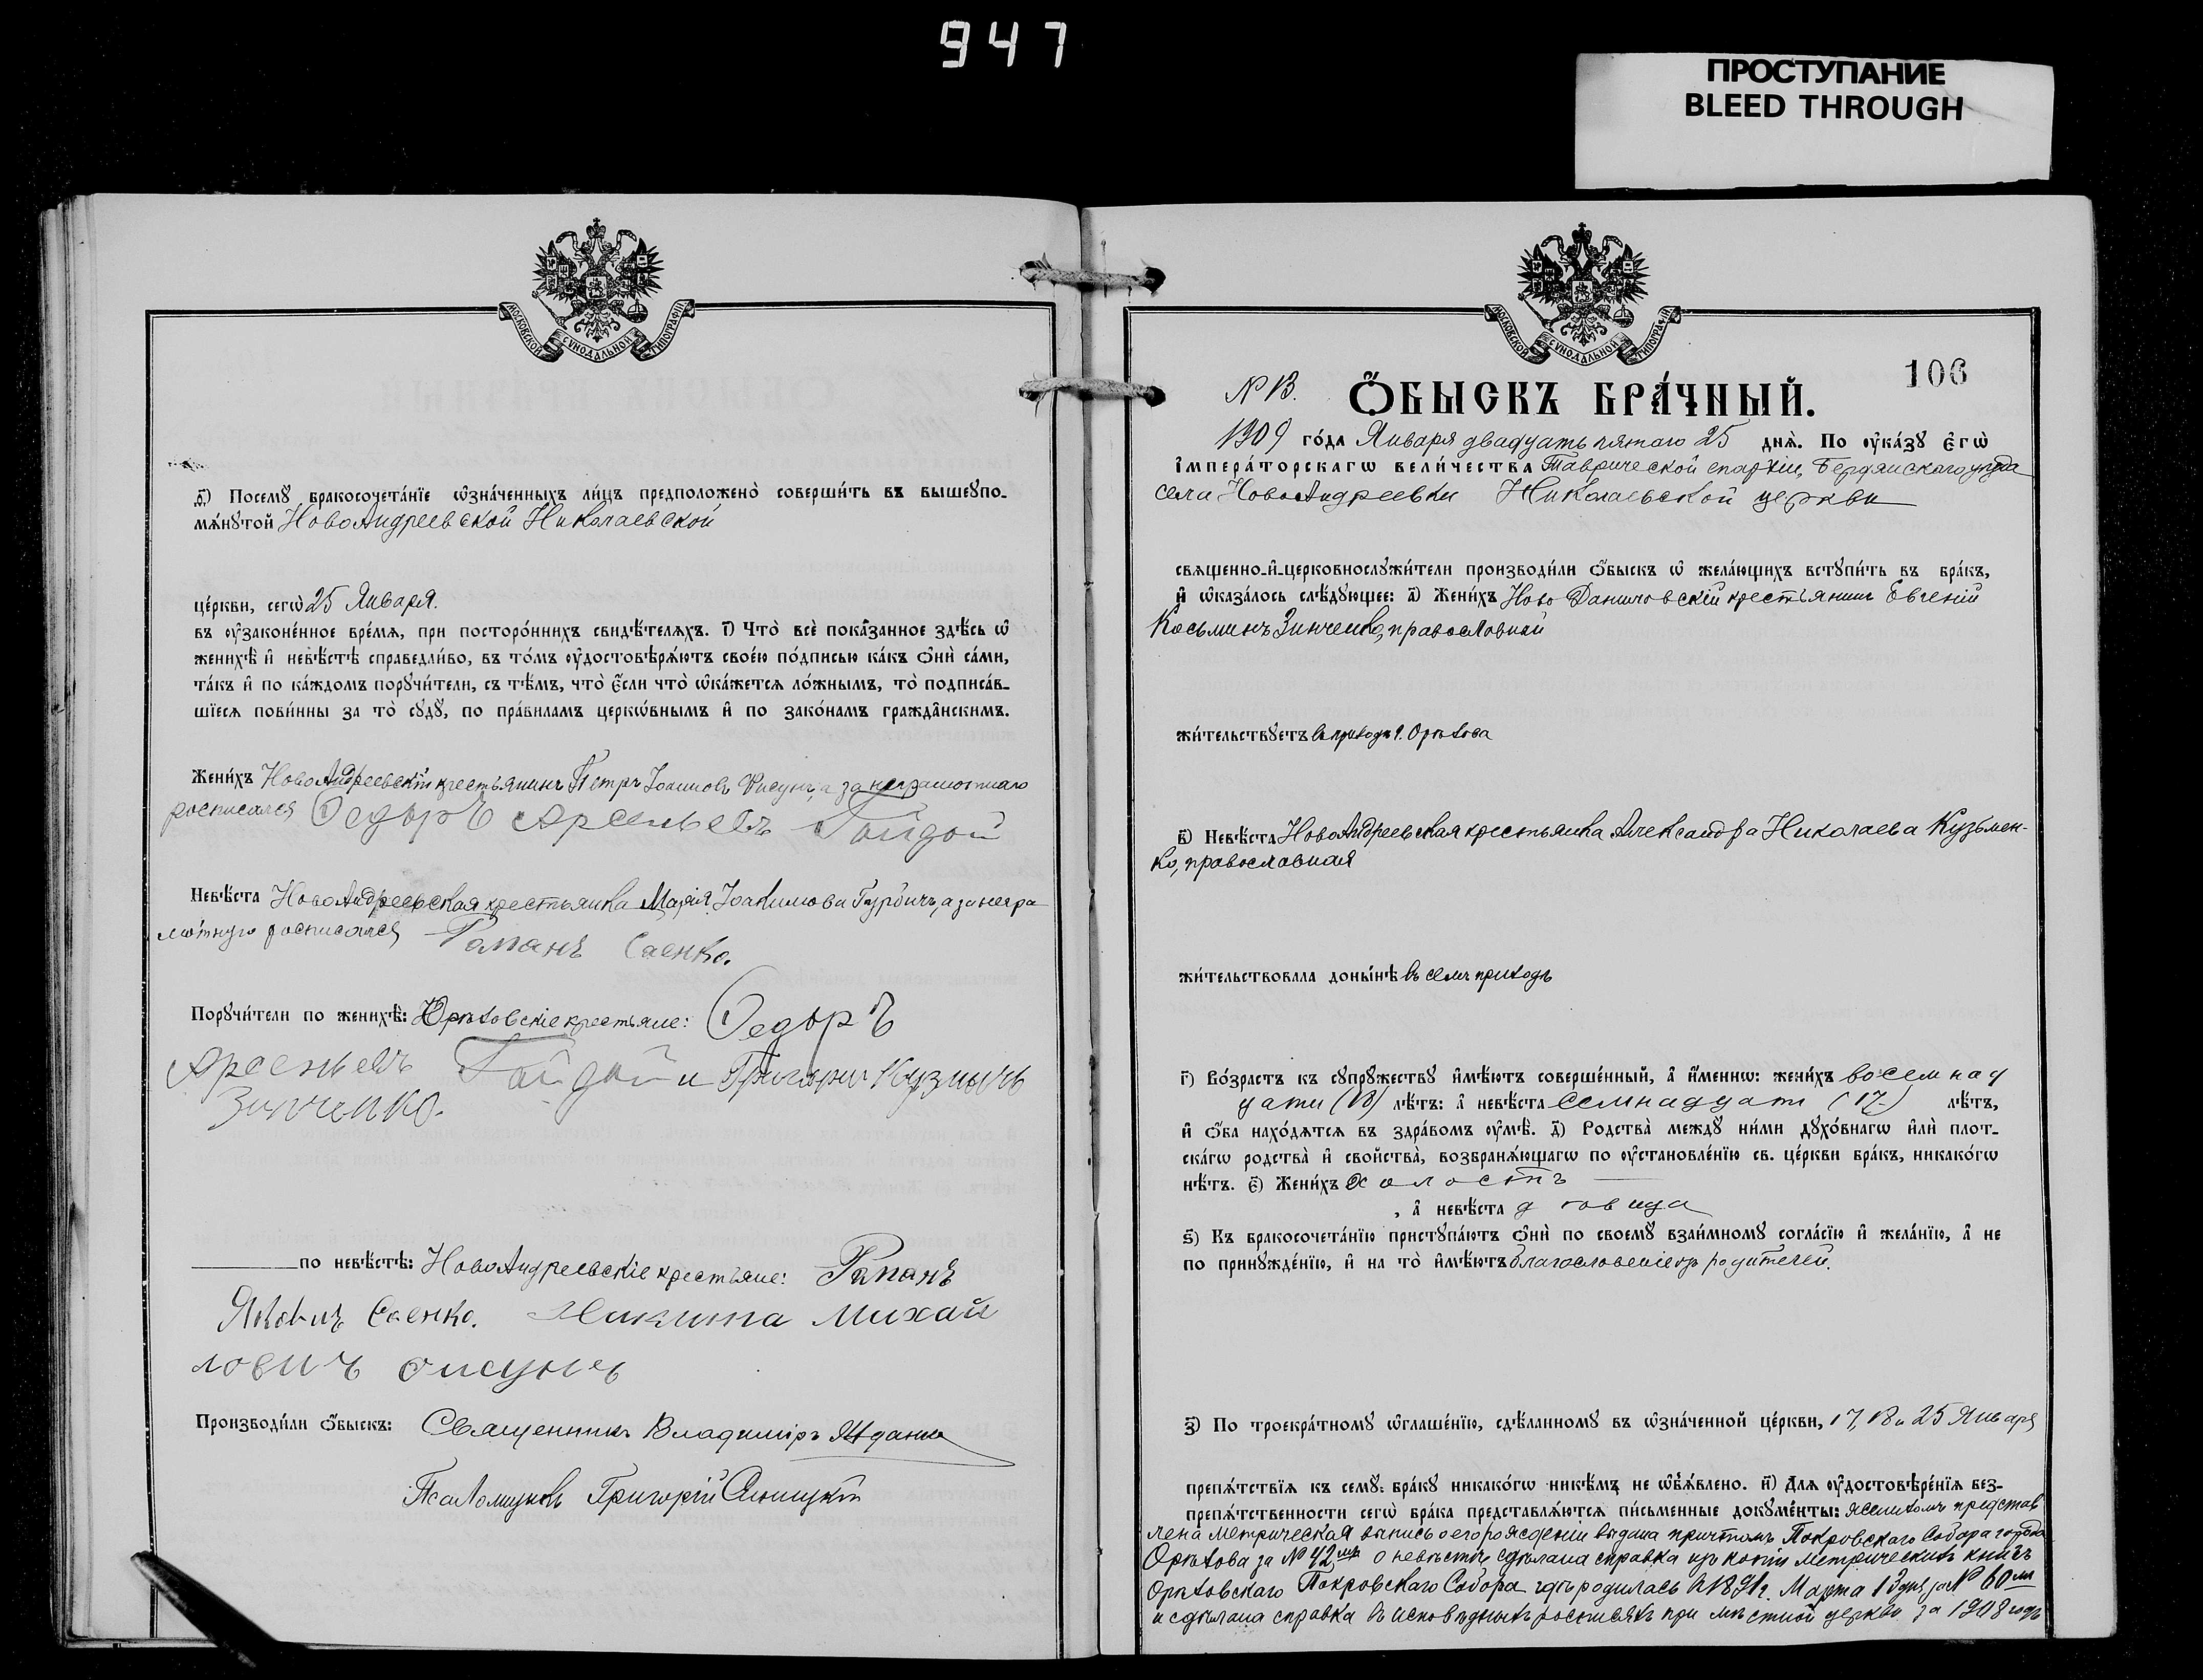 947
ПРОСТУПАНИЕ
BLEED THROUGH
МОСКОВСКОЙ СѴНОДАЛЬНОЙ ТИПОГРАФІИ
и҃) Посемꙋ бракосочета́нїе ѡ҆зна́ченныхъ ли́цъ предположено̀ соверши́ть въ вышеупо-
мѧ́нꙋтой НовоАндреевской Николаевской
це́ркви, сегѡ̀ 25 Января.
въ ᲂу҆законе́нное вре́мѧ, при посторо́ннихъ свидѣ́телѧхъ. і҃) Что̀ всѐ пока́занное здѣ́сь ѡ҆
женихѣ̀ и҆ невѣ́стѣ справедли́во, въ то́мъ ᲂу҆достовѣрѧ́ютъ свое́ю по́дписью ка́къ ѻ҆нѝ са́ми,
та́къ и҆ по ка́ждомъ порꙋчи́тели, съ тѣ́мъ, что̀ є҆́сли что̀ ѡ҆ка́жется ло́жнымъ, то̀ подписа́в-
шїеся пови́нны за то̀ сꙋдꙋ̀, по пра́виламъ церкѡ́внымъ и҆ по зако́намъ гражда́нскимъ.
Жени́хъ НовоАндреевскій крестьянинъ Петръ Іоанновъ Фисунъ, а за неграмотнаго
росписался Ѳедоръ Арсеньевъ Гайдой
Невѣ́ста НовоАндреевская крестьянка Марія Іоакимова Гурбичъ, а за негра
мотную росписался Раманъ Саенко.
Порꙋчи́тели по женихѣ̀: Орѣховскіе крестьяне: Ѳедоръ
Арсеньевъ Гайдой и Григорій Кузмичъ
Зинченко.
по невѣ́стѣ: НовоАндреевскіе крестьяне: Раманъ
Яковичъ Саенко. Никита Михай
ловичъ Фисунъ
Производи́ли ѻ҆́быскъ: Священникъ Владиміръ
Псаломщикъ Григорій
МОСКОВСКОЙ СѴНОДАЛЬНОЙ ТИПОГРАФІИ
106
№ 13. Ѻ҆́БЫСКЪ БРА́ЧНЫЙ.
1909 го́да Января двадцать пятаго 25 днѧ̀. По ᲂу҆ка́зꙋ є҆гѡ̀
і҆мпера́торскагѡ вели́чества Таврической епархіи, Бердянскаго уѣзда
села НовоАндреевки Николаевской церкви
священно-и҆-церковнослꙋжи́тели производи́ли ѻ҆́быскъ ѡ҆ жела́ющихъ встꙋпи́ть въ бра́къ,
и҆ ѡ҆каза́лось слѣ́дꙋющее: а҃) Жени́хъ Ново Даниловскій крестьянинъ Евгеній
Косьминъ Зинченко, православный
жи́тельствꙋетъ въ приходѣ г. Орѣхова
в҃) Невѣ́ста НовоАндреевская крестьянка Александра Николаева Кузьмен-
ко, православная
жи́тельствовала доны́нѣ въ семъ приходѣ
г҃) Во́зрастъ къ сꙋпрꙋ́жествꙋ и҆мѣ́ютъ соверше́нный, а҆ и҆́менно: жени́хъ восемнад
цати (18) лѣ́тъ: а҆ невѣ́ста семнадцати (17) лѣ́тъ,
и҆ ѻ҆́ба нахо́дятся въ здра́вомъ ᲂу҆мѣ̀. д҃) Родства̀ междꙋ ни́ми дꙋхо́внагѡ и҆лѝ плот-
ска́гѡ родства̀ и҆ свойства̀, возбранѧ́ющагѡ по ᲂу҆становле́нїю св. це́ркви бра́къ, никако́гѡ
нѣ́тъ. є҃) Жени́хъ холостъ
, а҆ невѣ́ста дѣвица
ѕ҃) Къ бракосочета́нїю пристꙋпа́ютъ ѻ҆нѝ по своемꙋ̀ взаи́мномꙋ согла́сїю и҆ жела́нїю, а҆ не
по принꙋжде́нїю, и҆ на то̀ и҆мѣ́ютъ благословеніе родителей.
з҃) По троекра́тномꙋ ѡ҆глаше́нїю, сдѣ́ланномꙋ въ ѡ҆зна́ченной це́ркви, 17, 18 и 25 Января
препѧ́тствїя къ семꙋ̀ бра́кꙋ никако́гѡ никѣ́мъ не ѡ҆бъѧ́влено. и҃) Для ᲂу҆достовѣре́нїя без-
препѧ́тственности сегѡ̀ бра́ка представлѧ́ются пи́сьменные докꙋме́нты: женихомъ представ
лена метрическая выпись о его рожденіи выдана причтомъ Покровскаго Собора города
Орѣхова за № 42мъ о невѣстѣ сдѣлана справка изъ копіи метрическихъ книгъ
Орѣховскаго Покровскаго Собора гдѣ родилась въ 1891г. Марта 13 дня за № 60мъ
и сдѣлана справка въ исповѣдныхъ росписяхъ при мѣстной церкви за 1908 годъ